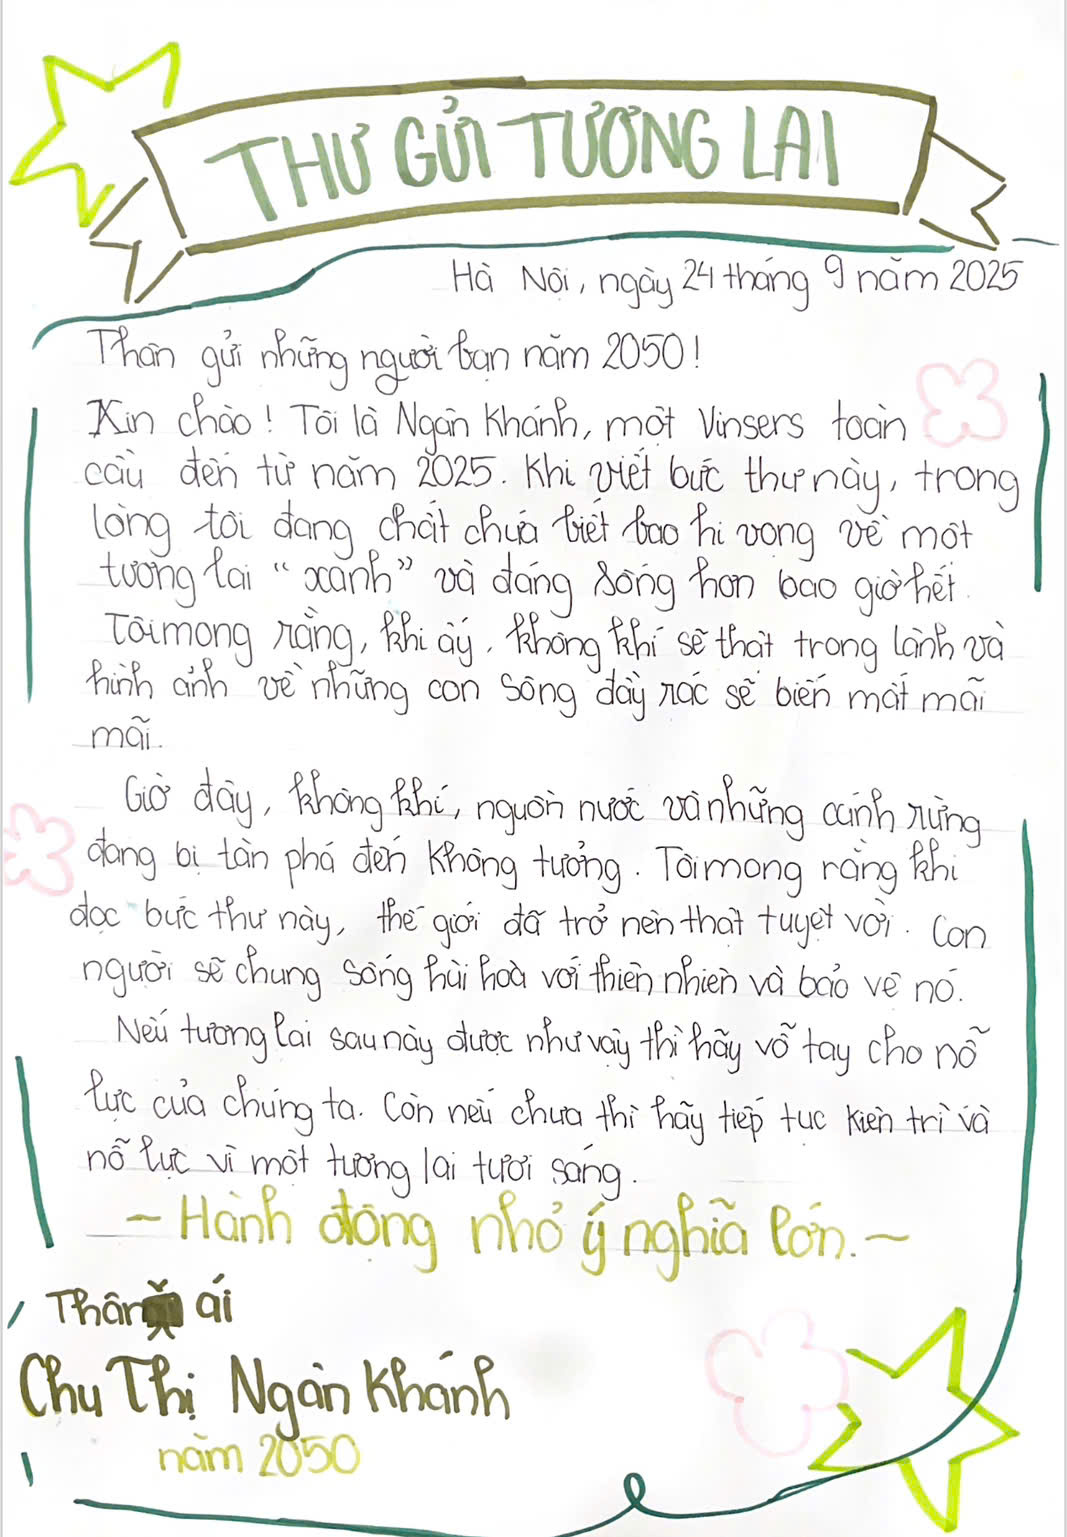 THƯ GỬI TƯƠNG LAI
Hà Nội, ngày 24 tháng 9 năm 2025
Thân gửi những người bạn năm 2050!
Xin chào! Tôi là Ngân Khánh, một Vinsers toàn
cầu đến từ năm 2025. Khi viết bức thư này, trong
lòng tôi đang chất chứa biết bao hi vọng về một
tương lai "xanh" và đáng sống hơn bao giờ hết.
Tôi mong rằng, khi ấy, không khí sẽ thật trong lành và
hình ảnh về những con sông đầy rác sẽ biến mất mãi
mãi.
Giờ đây, không khí, nguồn nước và những cánh rừng
đang bị tàn phá đến không tưởng. Tôi mong rằng khi
đọc bức thư này, thế giới đã trở nên thật tuyệt vời. Con
người sẽ chung sống hài hoà với thiên nhiên và bảo vệ nó.
Nếu tương lai sau này được như vậy thì hãy vỗ tay cho nỗ
lực của chúng ta. Còn nếu chưa thì hãy tiếp tục kiên trì và
nỗ lực vì một tương lai tươi sáng.
~ Hành động nhỏ ý nghĩa lớn. ~
Thân ái
Chu Thị Ngân Khánh
năm 2050